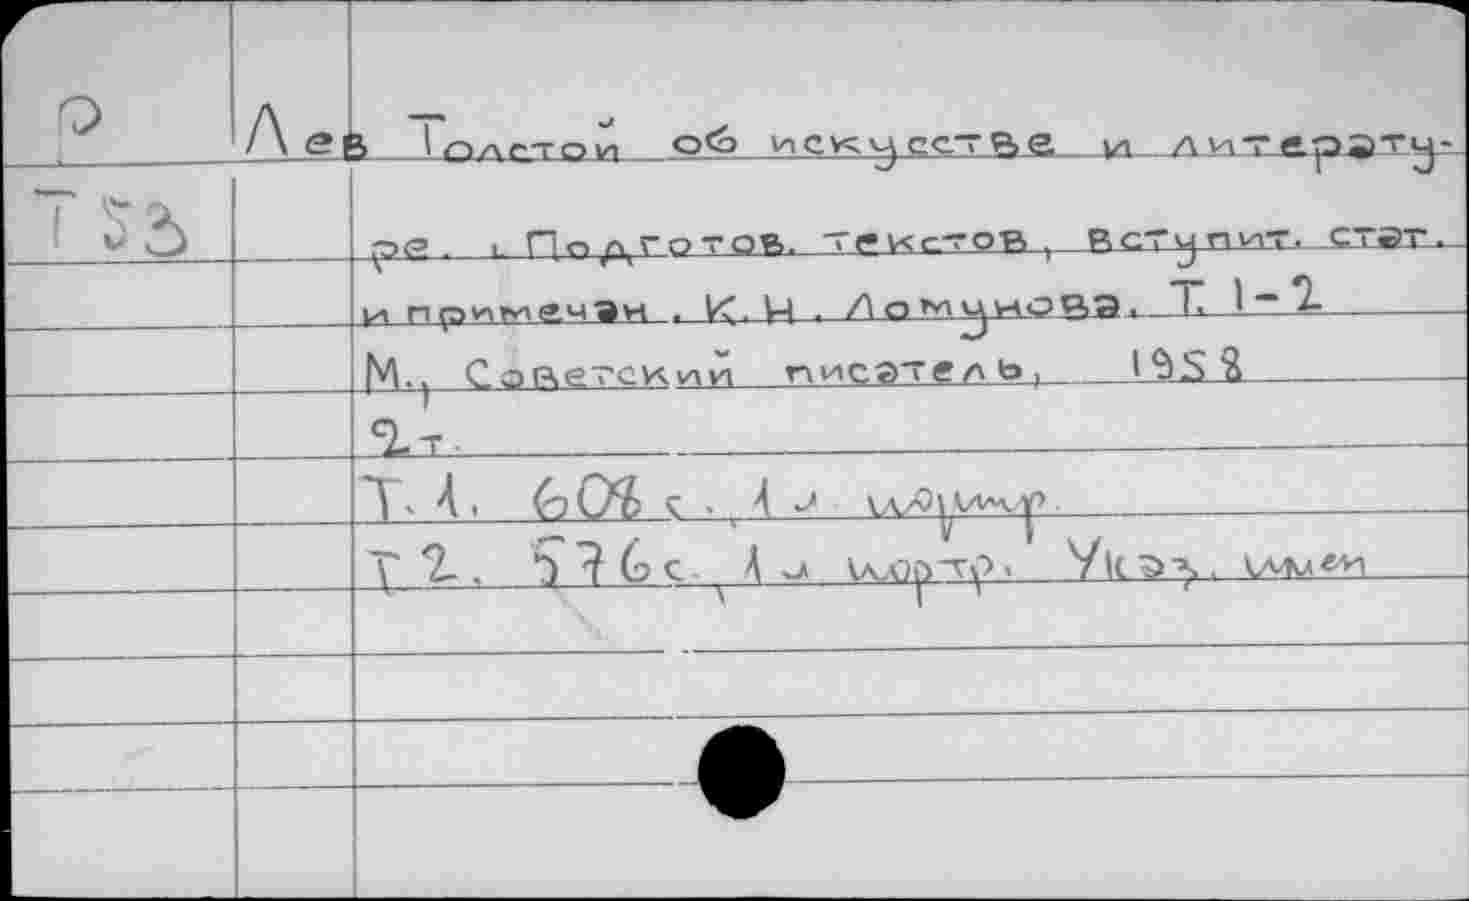 Р Лев Толстой об искусстве и литерату-
Т53 ре. [Подготов. текстов, вступит. стат.
и примечан. К.Н. Ломунова. Т. 1-2
М., Советский писатель, 1958
2 т.
Т.1. 608 с., 1 л портр.
Т 2. 576 с. 1 л портр. Указ. имен